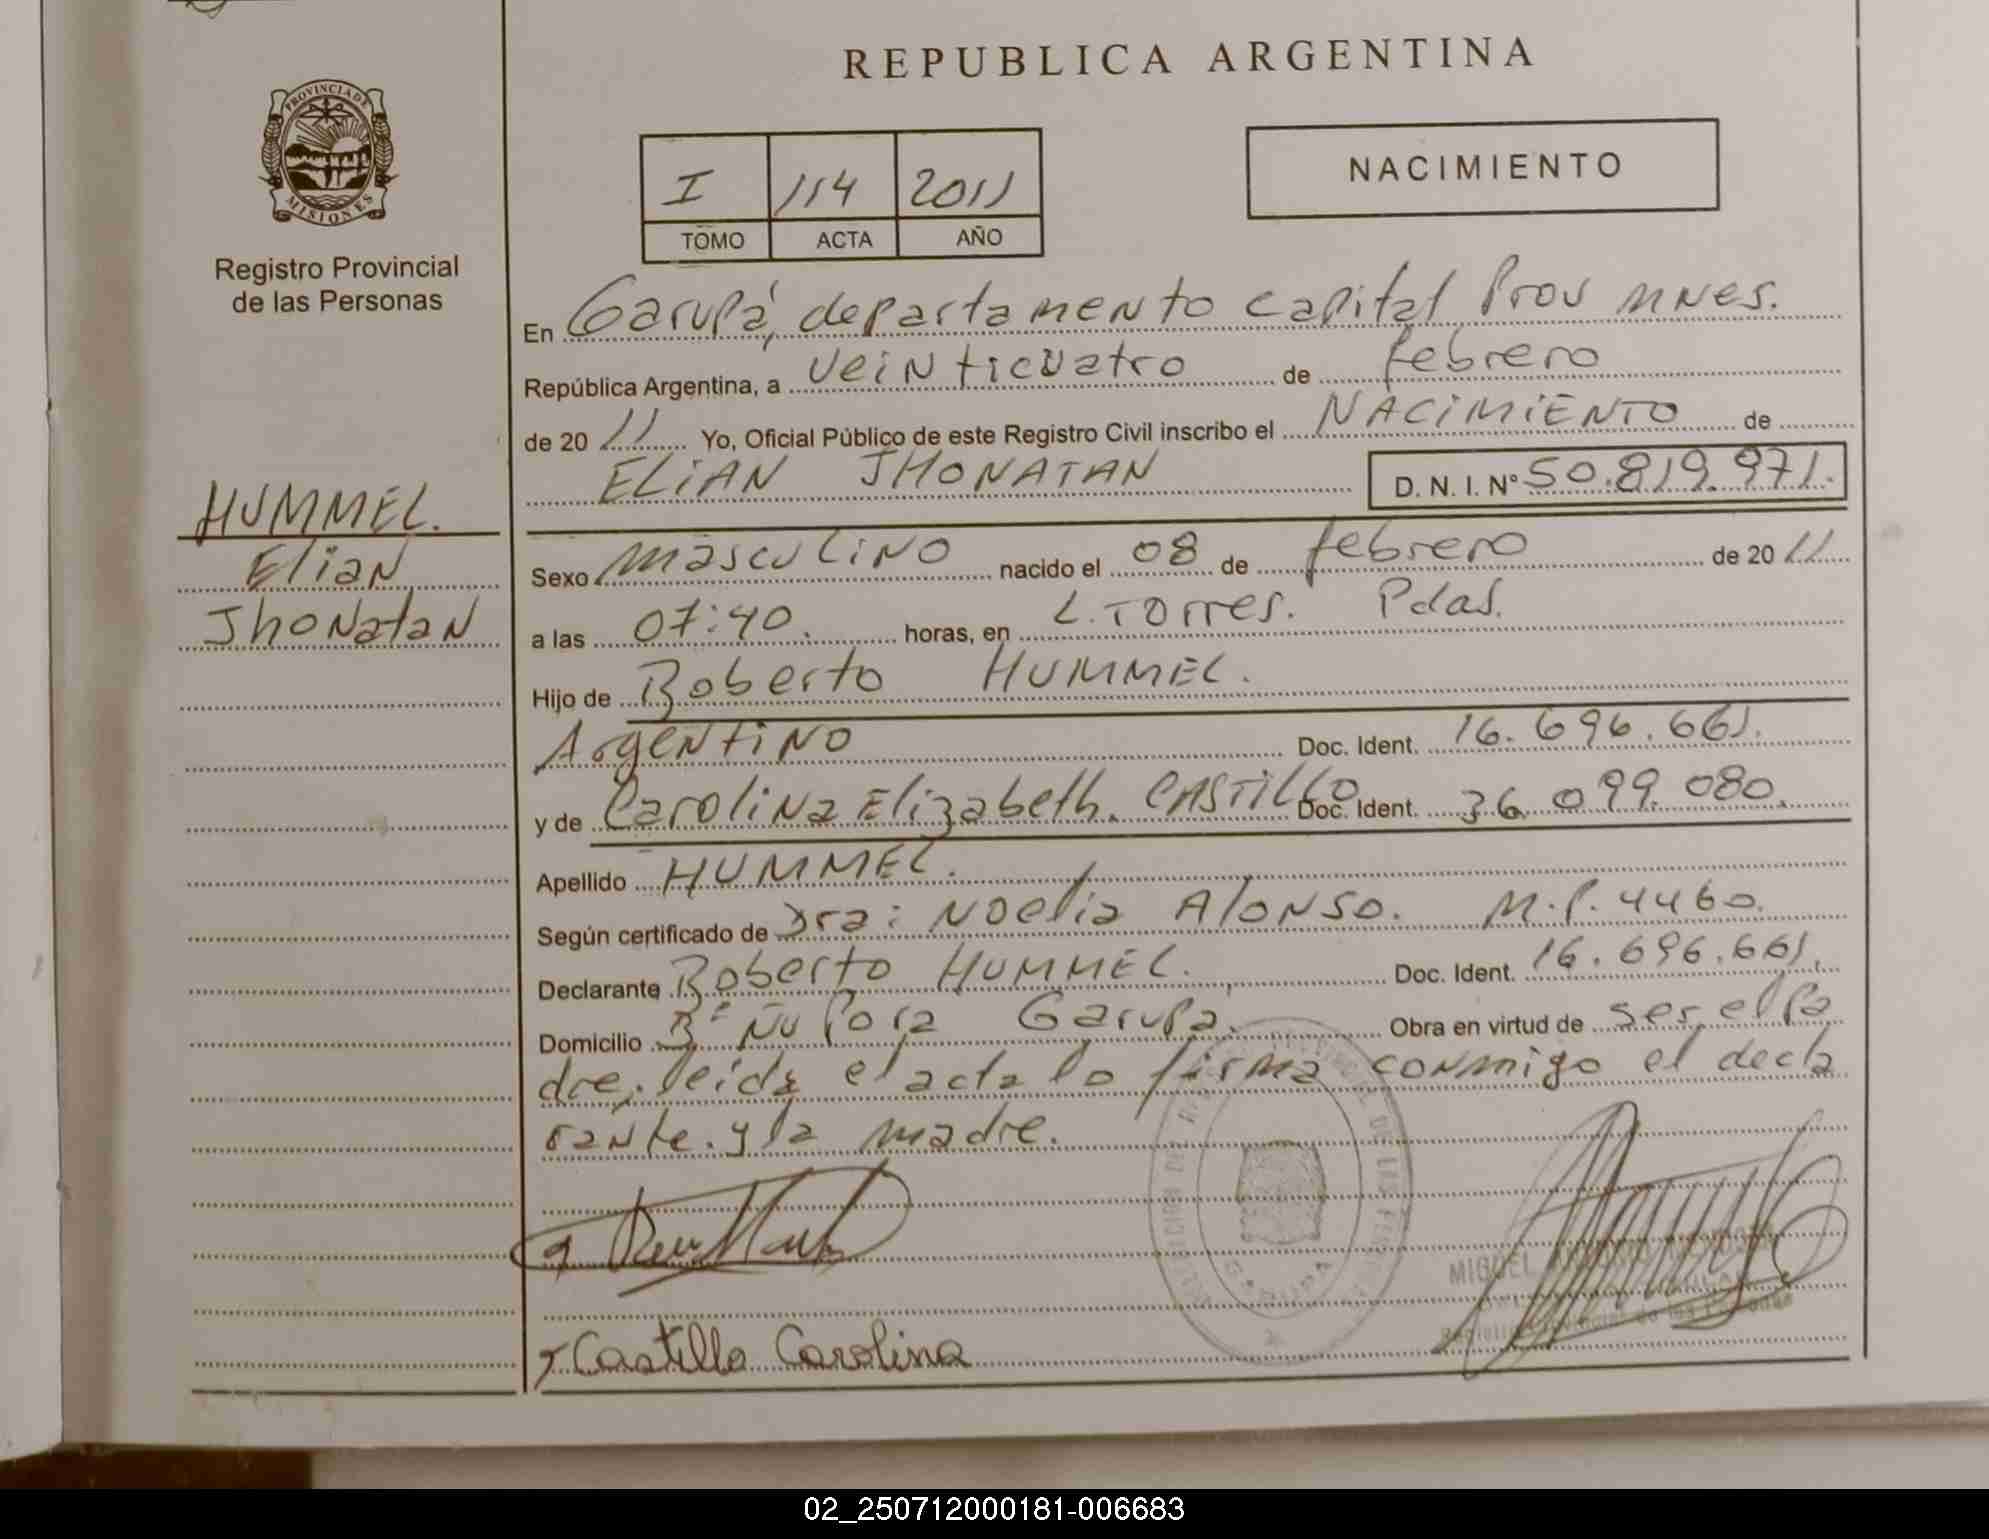 REPUBLICA ARGENTINA
PROVINCIA DE MISIONES
Registro Provincial
de las Personas
I 114 2011
TOMO ACTA AÑO
NACIMIENTO
En Garupá, departamento capital Prov MNES.
República Argentina, a veinticuatro de febrero
de 2011 Yo, Oficial Público de este Registro Civil inscribo el NACIMIENTO de
ELIAN JHONATAN D. N. I. N° 50.819.971.
HUMMEL.
Elian
Jhonatan
Sexo masculino nacido el 08 de febrero de 2011
a las 07:40. horas, en L. Torres. Pdas.
Hijo de Roberto HUMMEL.
Argentino Doc. Ident. 16.696.661.
y de Carolina Elizabeth. CASTILLO Doc. Ident. 36.099.080.
Apellido HUMMEL.
Según certificado de Dra: Noelia Alonso. M.P. 4460.
Declarante Roberto HUMMEL. Doc. Ident. 16.696.661.
Domicilio B° Ñu Pora Garupá. Obra en virtud de ser el pa
dre, leida el acta lo firma conmigo el decla
rante. y la madre.
MIGUEL
Castillo Carolina
02_250712000181-006683